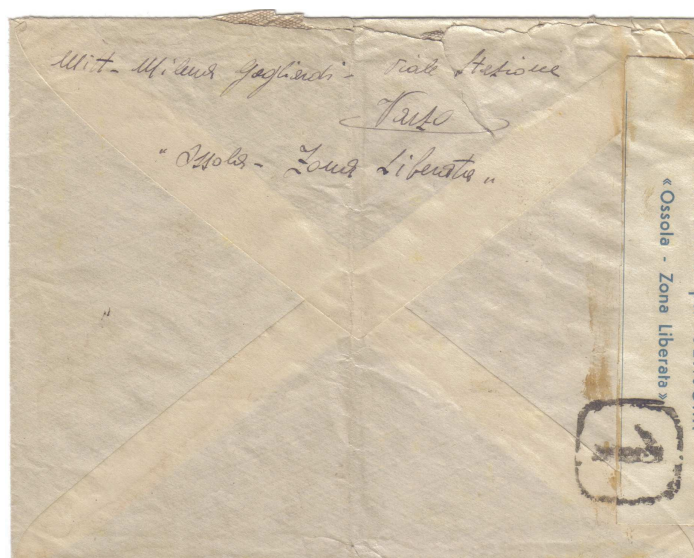 Mitt- Milena Gagliardi - Viale Stazione
Varzo
"Ossola - Zona Liberata"
« Ossola - Zona Liberata »
1